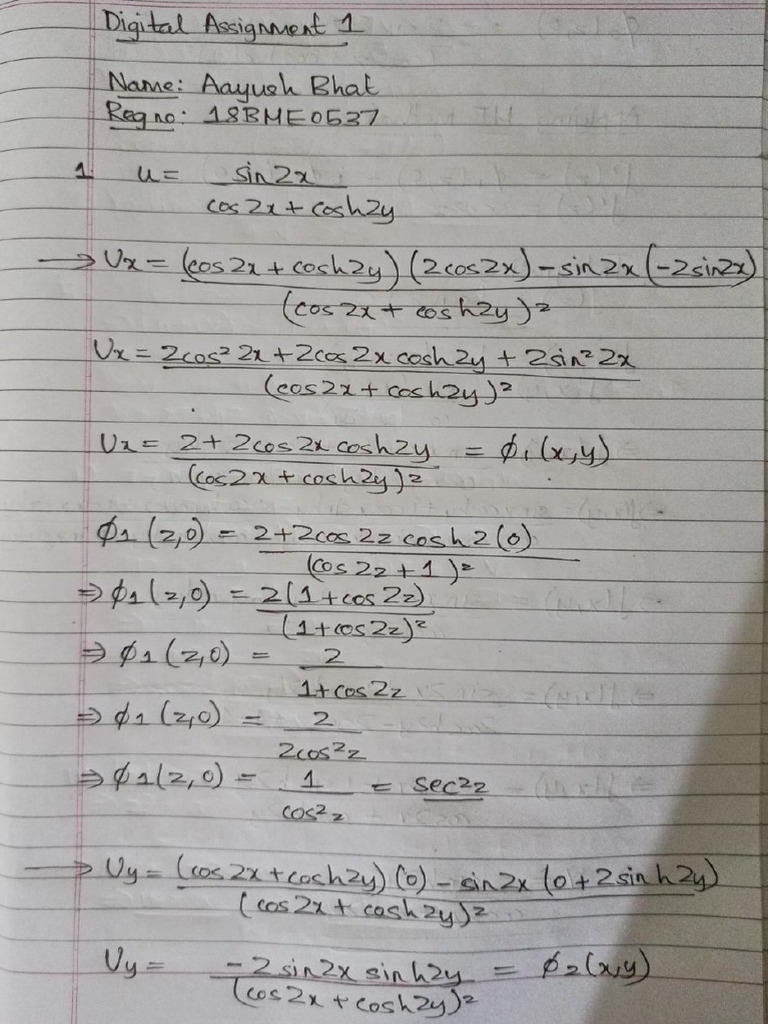 Digital Assignment 1
Name: Aayush Bhat
Reg no: 18BME0537
1 u = sin2x / cos2x + cosh2y
→ Ux = (cos2x + cosh2y)(2cos2x) - sin2x(-2sin2x) / (cos2x + cosh2y)²
Ux = 2cos²2x + 2cos2x cosh2y + 2sin²2x / (cos2x + cosh2y)²
Ux = 2 + 2cos2x cosh2y / (cos2x + cosh2y)² = ϕ₁(x,y)
ϕ1(z,0) = 2+2cos2z cosh2(0) / (cos2z+1)²
⇒ ϕ1(z,0) = 2(1+cos2z) / (1+cos2z)²
⇒ ϕ1(z,0) = 2 / 1+cos2z
⇒ ϕ1(z,0) = 2 / 2cos²z
⇒ ϕ1(z,0) = 1 / cos²z = sec²z
→ Uy = (cos2x+cosh2y)(0) - sin2x(0+2sinh2y) / (cos2x + cosh2y)²
Uy = -2sin2x sinh2y / (cos2x + cosh2y)² = ϕ2(x,y)